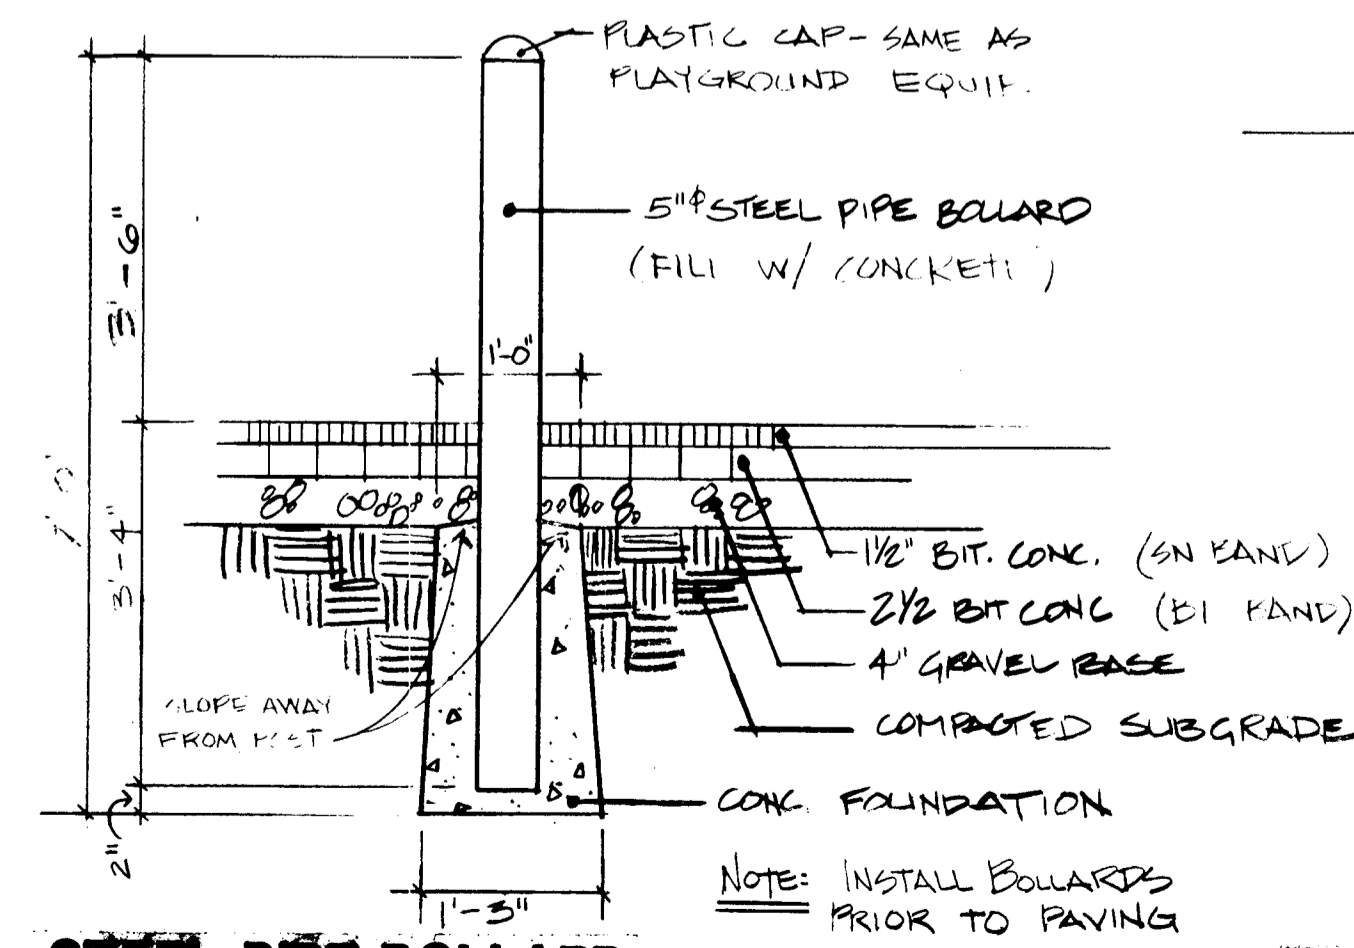 PLASTIC CAP - SAME AS
PLAYGROUND EQUIP.
5"φ STEEL PIPE BOLLARD
(FILL W/ CONCRETE)
3'-6"
1'-0"
7'-0"
3'-4"
1½" BIT. CONC. (
2½ BIT CONC (
4" GRAVEL BASE
COMPACTED SUBGRADE
SLOPE AWAY
FROM POST
CONC. FOUNDATION
2"
1'-3"
NOTE: INSTALL BOLLARDS
PRIOR TO PAVING
STEEL PIPE BOLLARD